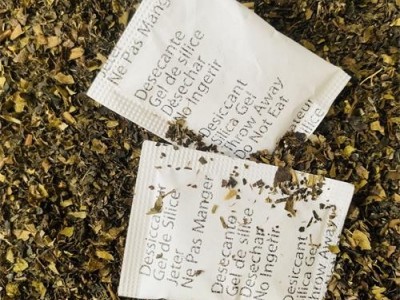 Jeter
Ne Pas Manger
Desecante
Gel de silice
Desechar
No Ingerir
Desiccant
Silica Gel
Throw Away
Do Not Eat
Silice
Dessiccant
Gel de Silice
Jeter
Ne Pas Manger
Desecante
Gel de silice
Desechar
No Ingerir
Desiccant
Silica Gel
Throw Away